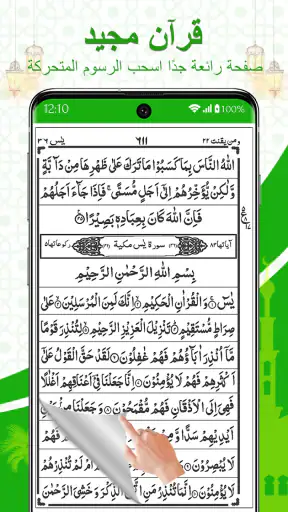 قرآن مجيد
صفحة رائعة جدًا اسحب الرسوم المتحركة
12:10
100%
ومن یقنت ۲۲
٦١١
یٰسٓ ۳٦
اللّٰهُ النَّاسَ بِمَا كَسَبُوْا مَا تَرَكَ عَلٰى ظَهْرِهَا مِنْ دَآبَّةٍ
وَّلٰكِنْ يُّؤَخِّرُهُمْ اِلٰٓى اَجَلٍ مُّسَمًّى ۚ فَاِذَا جَآءَ اَجَلُهُمْ
فَاِنَّ اللّٰهَ كَانَ بِعِبَادِهٖ بَصِيْرًا
اٰیاتها ۸۳
سورة یٰسٓ مکیة
رکوعاتها ٥
بِسْمِ اللّٰهِ الرَّحْمٰنِ الرَّحِيْمِ
يٰسٓ ۚ وَالْقُرْاٰنِ الْحَكِيْمِ ۙ اِنَّكَ لَمِنَ الْمُرْسَلِيْنَ ۙ عَلٰى
صِرَاطٍ مُّسْتَقِيْمٍ ؕ تَنْزِيْلَ الْعَزِيْزِ الرَّحِيْمِ ۙ لِتُنْذِرَ قَوْمًا
مَّآ اُنْذِرَ اٰبَآؤُهُمْ فَهُمْ غٰفِلُوْنَ لَقَدْ حَقَّ الْقَوْلُ عَلٰٓى
اَكْثَرِهِمْ فَهُمْ لَا يُؤْمِنُوْنَ اِنَّا جَعَلْنَا فِيْٓ اَعْنَاقِهِمْ اَغْلٰلًا
فَهِيَ اِلَى الْاَذْقَانِ فَهُمْ مُّقْمَحُوْنَ وَجَعَلْنَا مِنْۢ بَيْنِ
اَيْدِيْهِمْ سَدًّا وَّمِنْ
لَا يُبْصِرُوْنَ لَمْ تُنْذِرْهُمْ
لَا يُؤْمِنُوْنَ اِنَّمَا تُنْذِرُ مَنِ اتَّبَعَ الذِّكْرَ وَخَشِيَ الرَّحْمٰنَ